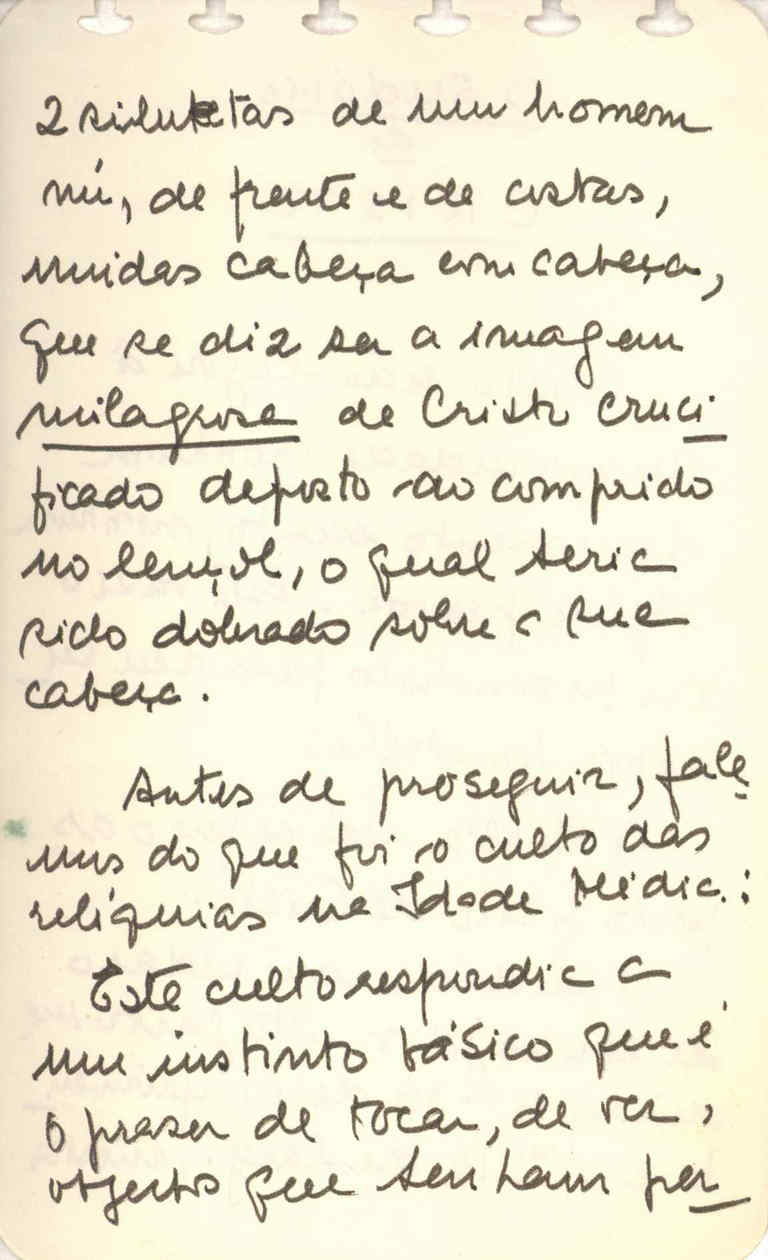 2 siluetas de um homem
nú, de frente e de costas,
unidas cabeça com cabeça,
que se diz ser a imagem
milagrosa de Cristo cruci
ficado deposto ao comprido
no lençol, o qual teria
sido dobrado sobre a sua
cabeça.
Antes de proseguir, fale
mos do que foi o culto das
relíquias na Idade Média:
Este culto respondia a
um instinto básico que é
o prazer de tocar, de ver,
objectos que tenham per